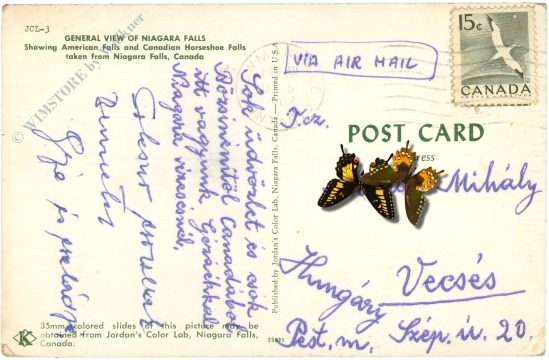 JCL-3
GENERAL VIEW OF NIAGARA FALLS
Showing American Falls and Canadian Horseshoe Falls
taken from Niagara Falls, Canada
Sok üdvözlet és csok
Bözsiméktől Canadából
itt vagyunk Gézáékkal
Niagara vizesésnél,
Gyo és családja
35mm colored slides of this picture may be
obtained from Jordan's Color Lab, Niagara Falls,
Canada.
K
35821
Published by Jordan's Color Lab, Niagara Falls, Canada — Printed in U.S.A.
VIA AIR MAIL
15c
CANADA
POST CARD
T.cz.
Mihály
Vecsés
Hungáry
Pest. m. Szép. ú. 20.
© WIMSTORE by